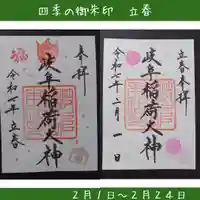 四季の御朱印　立春
奉拝
岐阜稲荷大神
令和七年 立春
福
立春
奉拝
岐阜稲荷大神
令和七年二月一日
2月1日〜2月24日